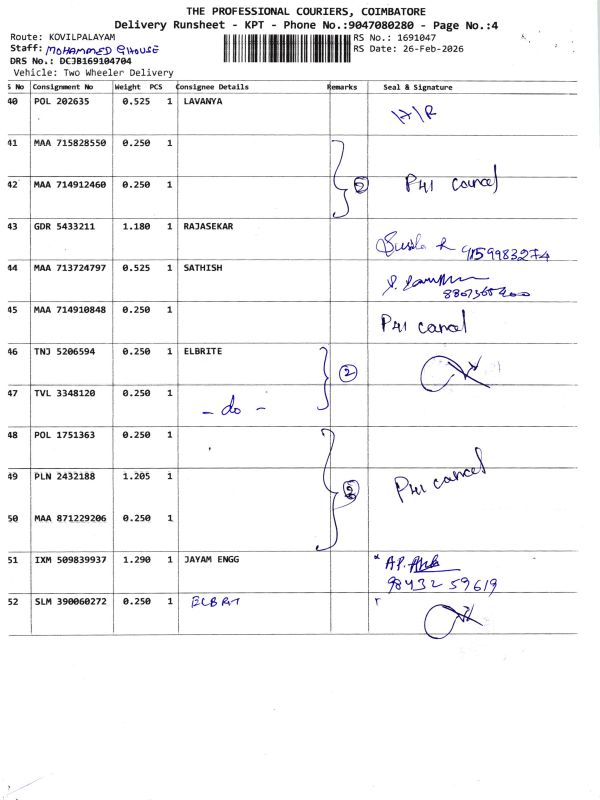 THE PROFESSIONAL COURIERS, COIMBATORE
Delivery Runsheet - KPT - Phone No.:9047080280 - Page No.:4
Route: KOVILPALAYAM RS No.: 1691047
Staff: MOHAMMED GHOUSE RS Date: 26-Feb-2026
DRS No.: DCJB169104704
Vehicle: Two Wheeler Delivery
S No Consignment No Weight PCS Consignee Details Remarks Seal & Signature
40 POL 202635 0.525 1 LAVANYA H/R
41 MAA 715828550 0.250 1
42 MAA 714912460 0.250 1 P41 cancel
43 GDR 5433211 1.180 1 RAJASEKAR
44 MAA 713724797 0.525 1 SATHISH
45 MAA 714910848 0.250 1 P41 cancel
46 TNJ 5206594 0.250 1 ELBRITE 2
47 TVL 3348120 0.250 1 - do -
48 POL 1751363 0.250 1
49 PLN 2432188 1.205 1 P41 cancel
50 MAA 871229206 0.250 1
51 IXM 509839937 1.290 1 JAYAM ENGG
98432 59619
52 SLM 390060272 0.250 1 ELBRT